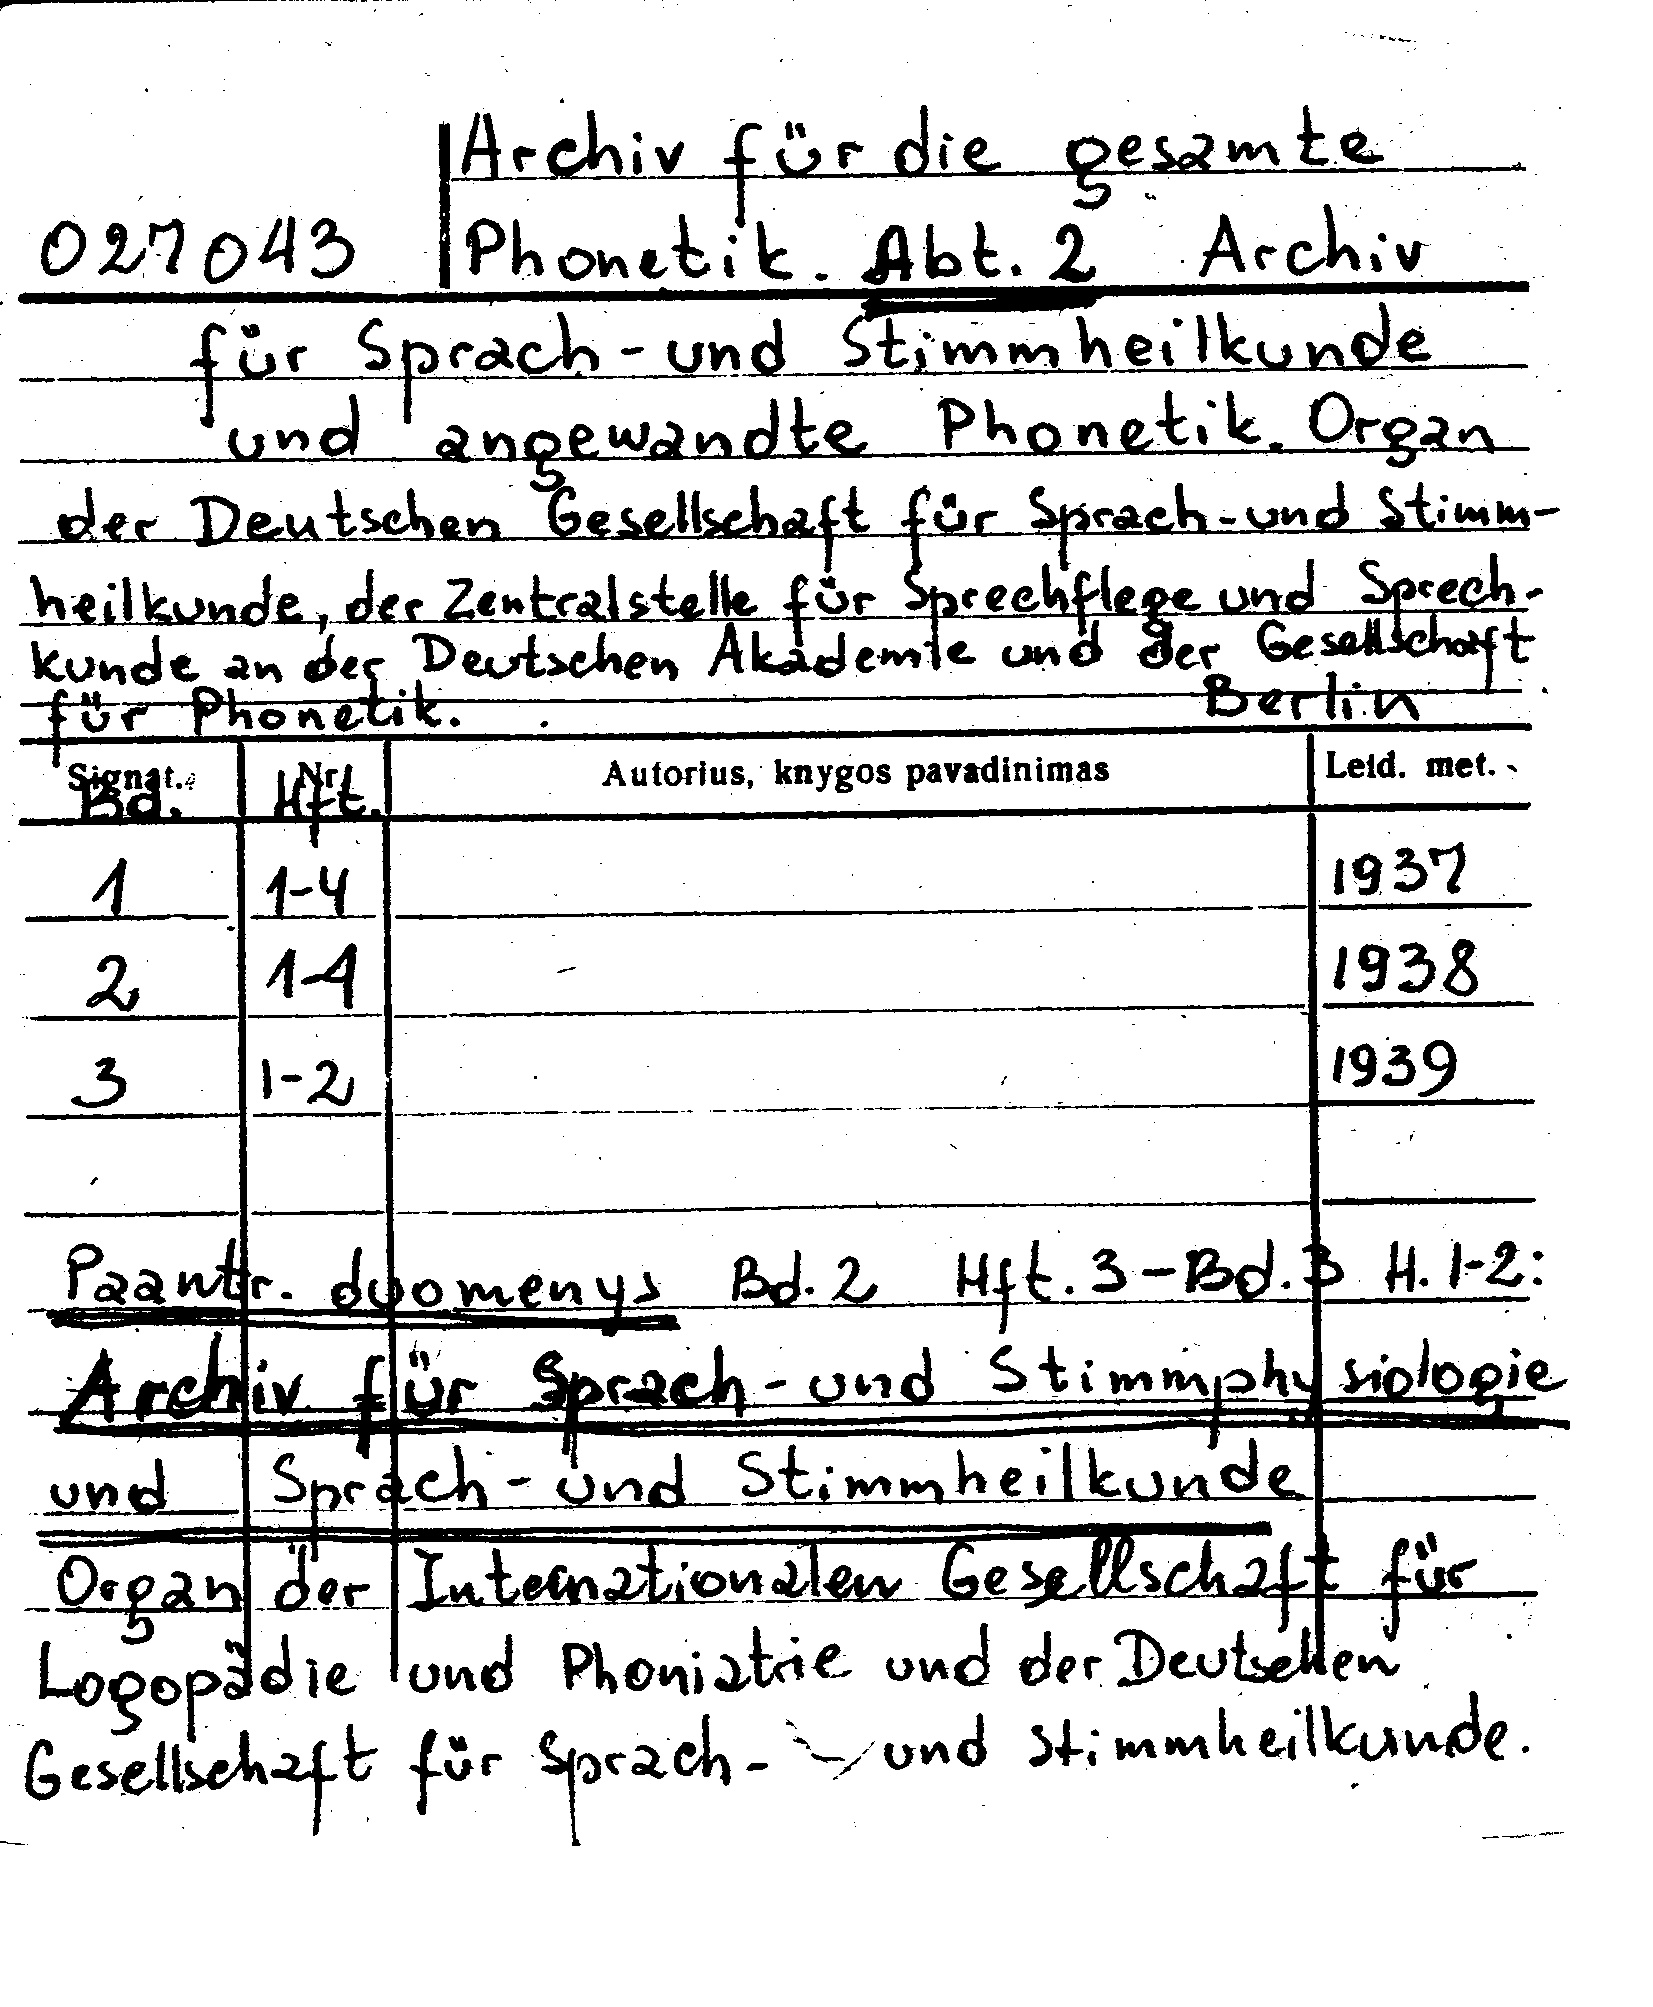 Archiv für die gesamte
027043 Phonetik. Abt. 2 Archiv
für Sprach- und Stimmheilkunde
und angewandte Phonetik. Organ
der Deutschen Gesellschaft für Sprach- und Stimm-
heilkunde, der Zentralstelle für Sprechflege und Sprech-
kunde an der Deutschen Akademie und der Gesellschaft
für Phonetik. Berlin
Signat. Nr. Autorius, knygos pavadinimas Leid. met.
Bd. Hft.
1 1-4 1937
2 1-4 1938
3 1-2 1939
Paantr. duomenys Bd. 2 Hft. 3 - Bd. 3 H. 1-2:
Archiv für Sprach- und Stimmphysiologie
und Sprach- und Stimmheilkunde
Organ der Internationalen Gesellschaft für
Logopädie und Phoniatrie und der Deutschen
Gesellschaft für Sprach- und Stimmheilkunde.